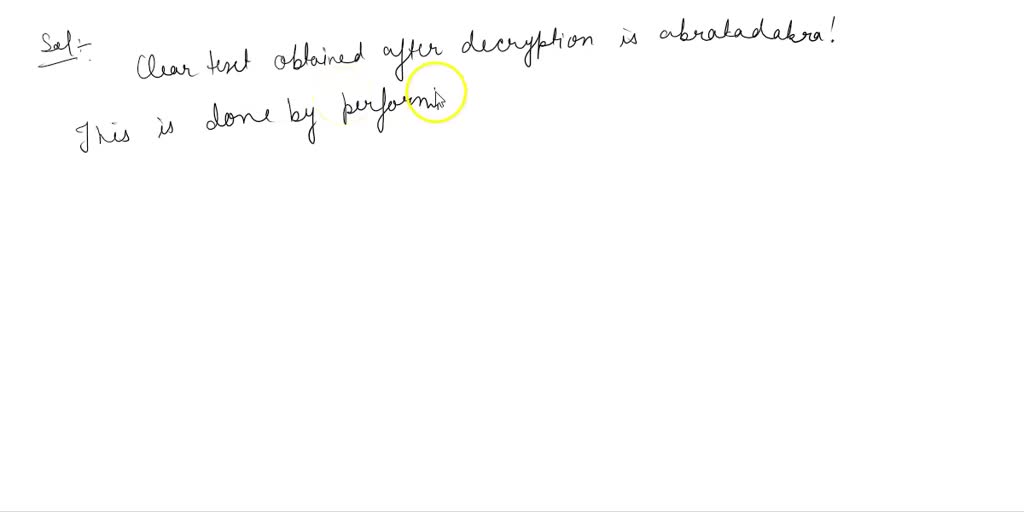 Sol:-
Clear text obtained after decryption is abrakadakra!
This is done by performi